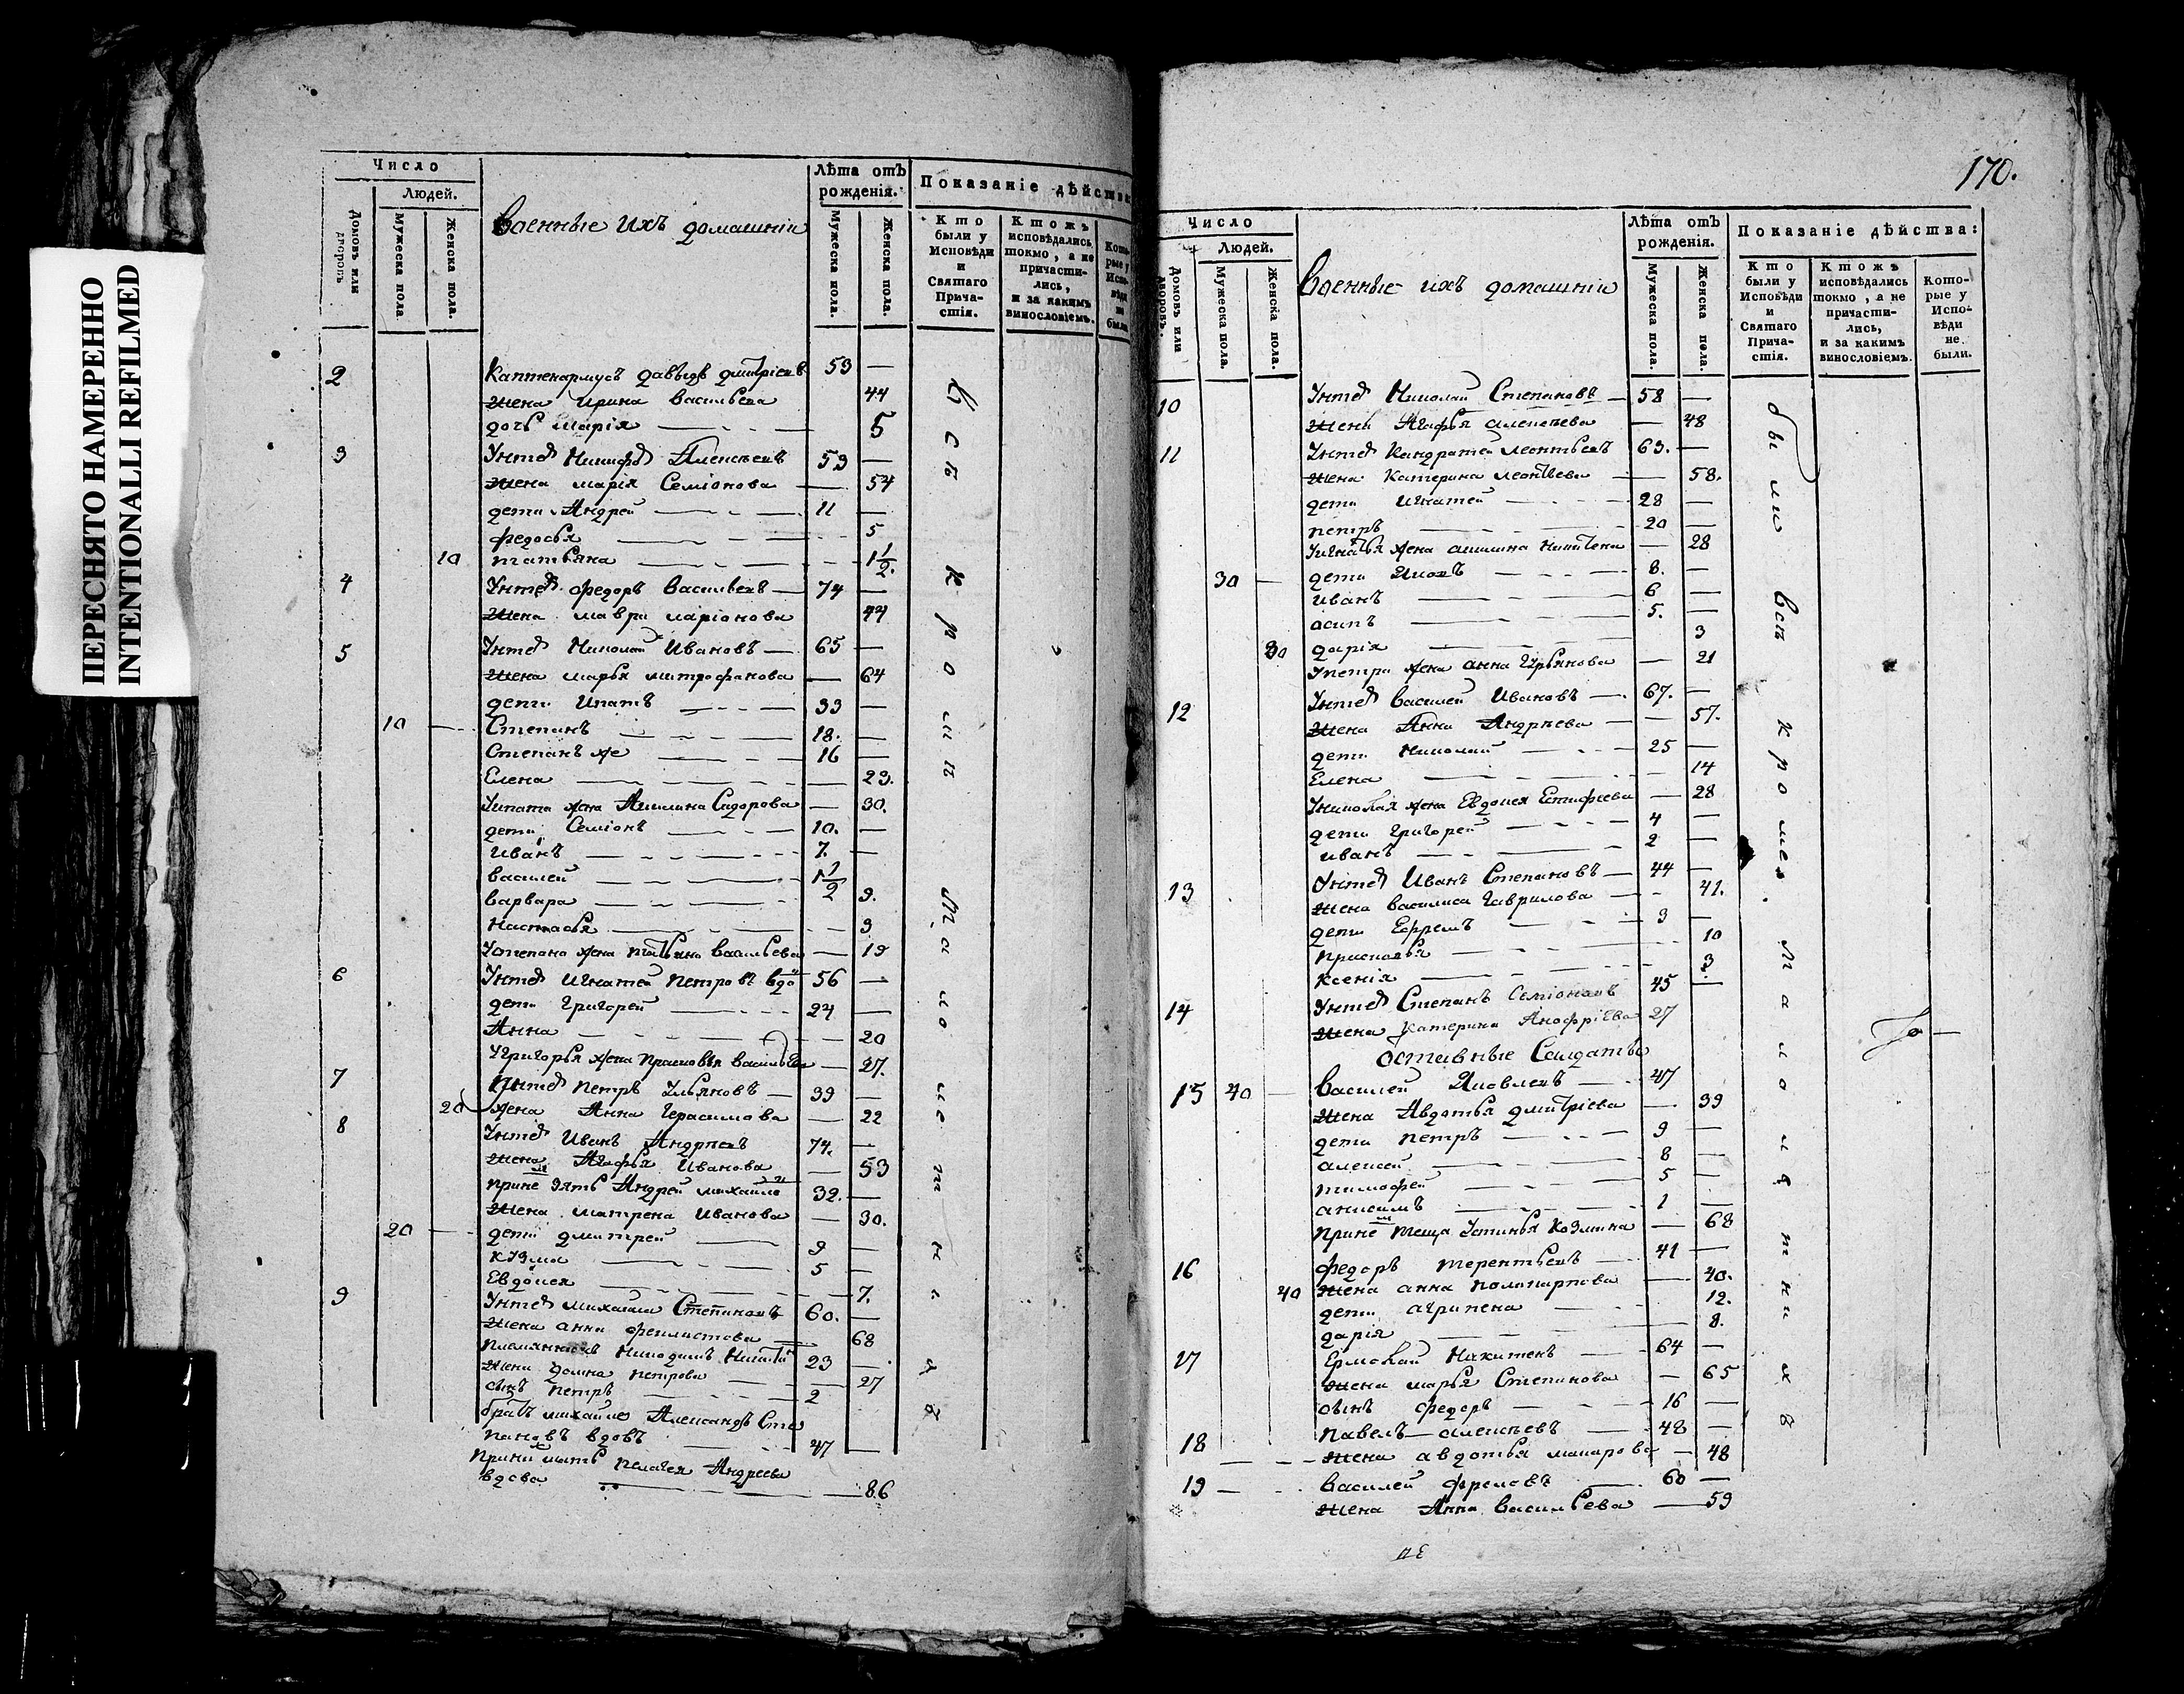 ПЕРЕСНЯТО НАМЕРЕННО
INTENTIONALLI REFILMED
Число
Людей.
Домовъ или дворовъ
Мужеска пола.
Женска пола.
Военные ихъ домашнiи
Лѣта отъ рожденiя.
Мужеска пола.
Женска пола.
Показанiе дѣйства
Кто были у Исповѣди и Святаго Прича-стiя.
Ктожъ исповѣдались токмо, а не причасти-лись, и за какимъ винословiемъ.
Кото-рые у Испо-вѣди не были
2 Каптенармусъ Давыдъ Дмитрiевъ 53 —
жена Ирина Васильева 44
дочь Марiя 5
3 Унтеръ Никифоръ Алексѣевъ 53 —
жена Марiя Семiонова — 54
дети Андрей 11 —
Федосья 5
10 Татьяна 1 1/2.
4 Унтеръ Федоръ Васильевъ — 74 —
жена Мавра Ларiонова 44
5 Унтеръ Николай Ивановъ — 65 —
жена Марья Митрофанова — 64
дети Ипатъ 33 —
10 Степанъ 18. —
Степанъ же 16 —
Елена — 23.
Уипата жена Акилина Сидорова — 30.
дети Семiонъ 10. —
Иванъ 7. —
Василей 1 1/2
Варвара 9.
Настасья 3
Устепана жена Татьяна Васильева — 19
6 Унтеръ Игнатей Петровъ вдо 56 —
дети Григорей 24 —
Анна 20
Угригорья жена Прасковья Васильева — 27.
7 Унтеръ Петръ Ульяновъ — 39 —
20 жена Анна Герасимова — 22
8 Унтеръ Иванъ Андреевъ 74. —
жена Агафья Иванова — 53
прине зять Андрей Михайло 32. —
жена Матрена Иванова — 30.
20 дети Дмитрей 9 —
Кузма 5 —
Евдокея 7.
9 Унтеръ Михайла Степановъ 60. —
жена Анна Феклистова — 68
племянникъ Никодимъ Никит 23 —
жена Домна Петрова — 27
сынъ Петръ 2
братъ Михайле Александръ Сте
пановъ вдовъ 47 —
прини мать Пелагея Андреева
вдова 86
Всѣ кромѣ малолетнихъ
170.
Число
Людей.
Домовъ или дворовъ.
Мужеска пола.
Женска пола.
Военные ихъ домашнiи
Лѣта отъ рожденiя.
Мужеска пола.
Женска пола.
Показанiе дѣйства:
Кто были у Исповѣди и Святаго Прича-стiя.
Ктожъ исповѣдались токмо, а не причасти-лись, и за какимъ винословiемъ.
Кото-рые у Испо-вѣди не были.
10 Унтеръ Николай Степановъ — 58 —
жена Агафья Алексеева — 48
11 Унтеръ Кандратей Леонтьевъ 63. —
жена Катерина Леонтьева — 58.
дети Игнатей 28 —
Петръ 20 —
Уигнатья жена Акилина Никитена — 28
30 дети Яковъ 8. —
Иванъ 6 —
Осипъ 5. —
30 Дарiя 3
Упетра жена Анна Гурьянова — 21
12 Унтеръ Василей Ивановъ — 67. —
жена Анна Андреева — 57.
дети Николай 25 —
Елена — 14
Униколая жена Евдокея Естифеева — 28
дети Григорей 4 —
Иванъ 2 —
13 Унтеръ Иванъ Степановъ — 44 —
жена Василиса Гаврилова — 41.
дети Ефремъ 3 —
Прасковья 10
Ксенiя 3
14 Унтеръ Степанъ Семiоновъ 45 —
жена Катерина Анофрiева 27
Отставные Салдаты
15 40 Василей Яковлевъ — 47
жена Авдотья Дмитрiева — 39
дети Петръ 9 —
Алексей 8 —
Тимофей 5 —
Анисимъ 1 —
прине теща Устинья Козмина — 68
16 Федоръ Терентьевъ — 41 —
40 жена Анна Поликарпова — 40.
дети Агрипена 12.
Дарiя 8.
17 Ермолай Никитенъ — 64 —
жена Марья Степанова — 65
сынъ Федоръ 16 —
18 Павелъ Алексѣевъ — 48 —
жена Авдотья Макарова — 48
19 Василей Фроловъ 60 —
жена Анна Васильева — 59
были Всѣ кромѣ. Малолѣтнихъ